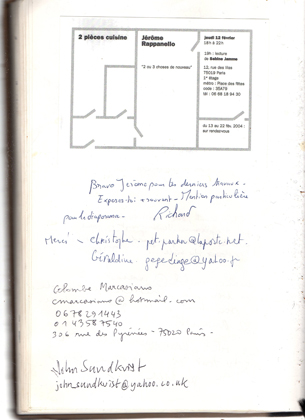 2 pièces cuisine
Jérôme
Rappanello
"2 ou 3 choses de nouveau"
jeudi 12 février
18h à 22h
19h : lecture
de Sabine Jamme
12, rue des lilas
75019 Paris
1er étage
métro : Place des fêtes
code : 35478
tél : 06 88 18 94 30
du 13 au 22 fév. 2004 :
sur rendez-vous
Bravo Jérôme pour tes derniers travaux.
Exposes-toi + souvent - Mention particulière
pour le diaporama. Richard
Merci - Christophe. pet.parker@laposte.net.
Géraldine.
Colombe Marcasiano
cmarcasiano@hotmail.com
0678291443
0143587540
306 rue des Pyrénées - 75020 Paris -
John Sundkvist
john_sundkvist@yahoo.co.uk